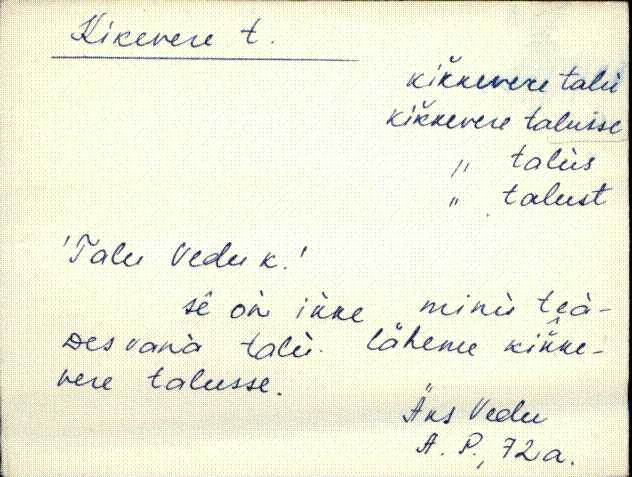 Kikevere t.
kikkevere talù
kikkevere talusse
" talùs
" talust
'Talu Vedu k.'
sē òn ikke minù teà-
Des vanà talù. lähene kikke-
vere talusse.
Äks Vedu
A. P., 72a.